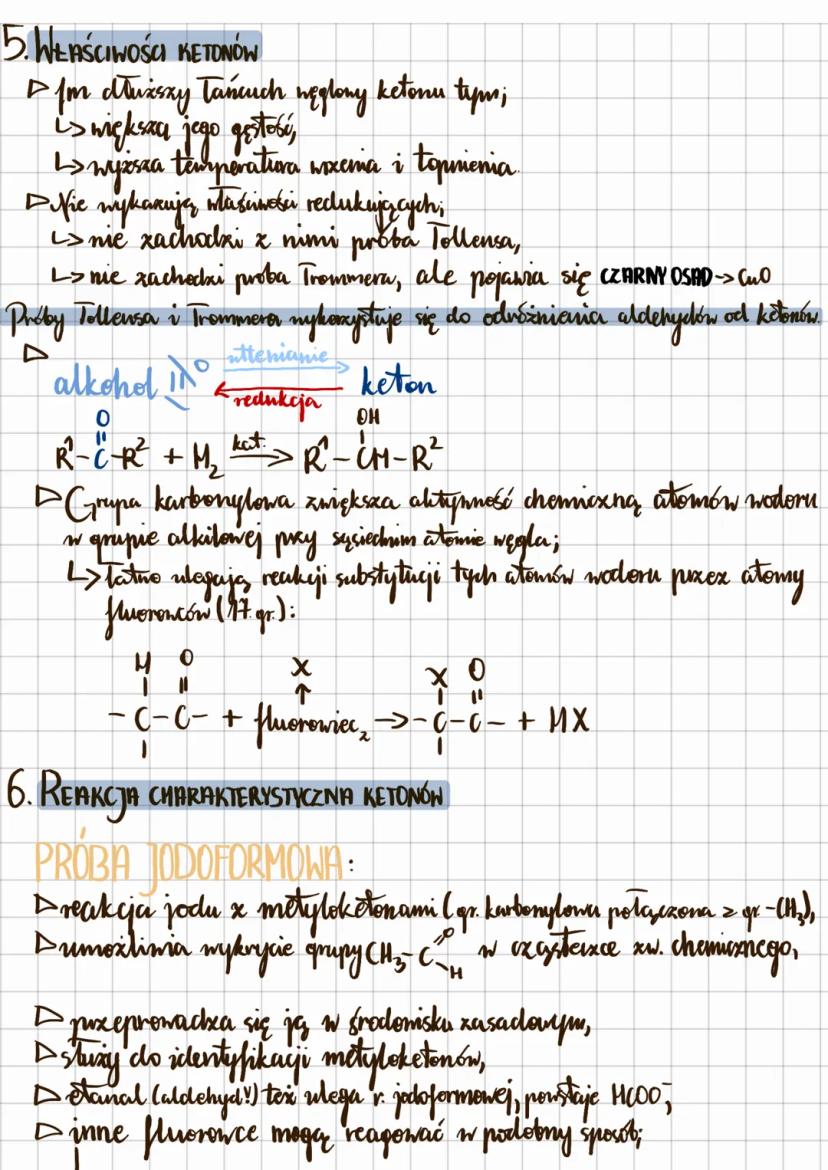 5. WŁAŚCIWOŚCI KETONÓW
▷ Im dłuższy łańcuch węglowy ketonu tym;
↳ większa jego gęstość,
↳ wyższa temperatura wrzenia i topnienia.
▷ Nie wykazują właściwości redukujących;
↳ nie zachodzi z nimi próba Tollensa,
↳ nie zachodzi próba Trommera, ale pojawia się CZARNY OSAD → CuO
Próby Tollensa i Trommera wykorzystuje się do odróżnienia aldehydów od ketonów.
▷
utlenianie
alkohol II° keton
redukcja
O OH
R¹-C-R² + H₂ kat. → R¹-CH-R²
▷ Grupa karbonylowa zwiększa aktywność chemiczną atomów wodoru
w grupie alkilowej przy sąsiednim atomie węgla;
↳ łatwo ulegają reakcji substytucji tych atomów wodoru przez atomy
fluorowców (17 gr.):
H O X X O
-C-C- + fluorowiec₂ → -C-C- + HX
6. REAKCJA CHARAKTERYSTYCZNA KETONÓW
PRÓBA JODOFORMOWA:
▷ reakcja jodu z metyloketonami (gr. karbonylowa połączona z gr. -CH₃),
▷ umożliwia wykrycie grupy CH₃-C=O -H w cząsteczce zw. chemicznego,
▷ przeprowadza się ją w środowisku zasadowym,
▷ służy do identyfikacji metyloketonów,
▷ etanal (aldehyd!) też ulega r. jodoformowej, powstaje HCOO⁻;
▷ inne fluorowce mogą reagować w podobny sposób;